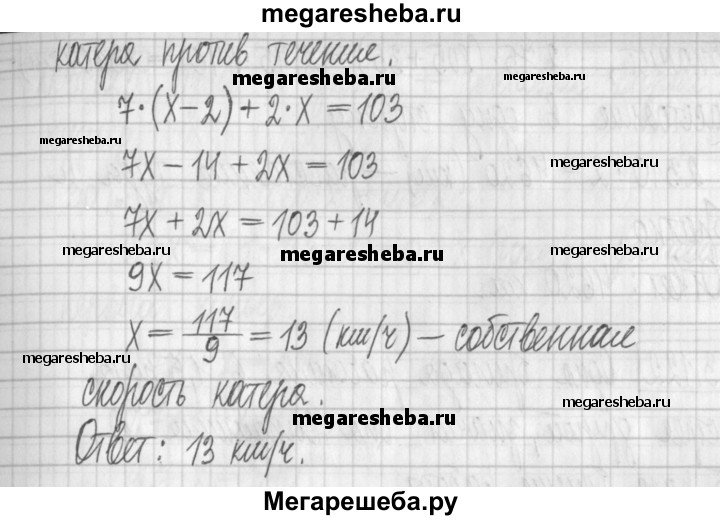 megaresheba.ru
катера против течение.
megaresheba.ru megaresheba.ru
7·(x-2)+2·x=103
megaresheba.ru
7x-14+2x=103
megaresheba.ru megaresheba.ru
7x+2x=103+14
megaresheba.ru megaresheba.ru megaresheba.ru
9x=117
x=117/9=13 (км/ч) – собственная
megaresheba.ru megaresheba.ru
скорость катера.
megaresheba.ru megaresheba.ru
Ответ: 13 км/ч.
Мегарешеба.ру